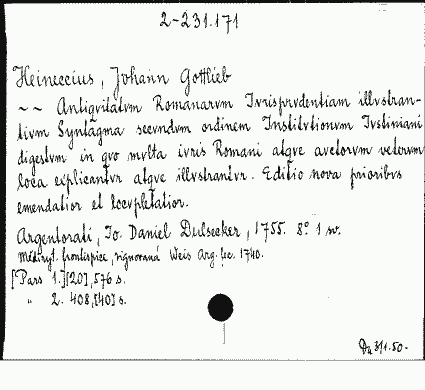 2-231.171
Heineccius, Johann Gottlieb
~~ Antiqvitatvm Romanarvm Ivrisprvdentiam illvstran-
tivm Syntagma secvndvm ordinem Institvtionvm Ivstiniani
digestvm in qvo mvlta ivris Romani atqve avctorvm vetervm
loca explicantvr atqve illvstrantvr. Editio nova prioribvs
emendatior et locvpletatior.
Argentorati, Io. Daniel Dulsecker, 1755. 8° 1 sv.
Mědiryt. frontispice, signovaná Weis Arg. fec. 1740.
[Pars 1.] [20], 576 s.
" 2. 408, [40] s.
3/1.50-